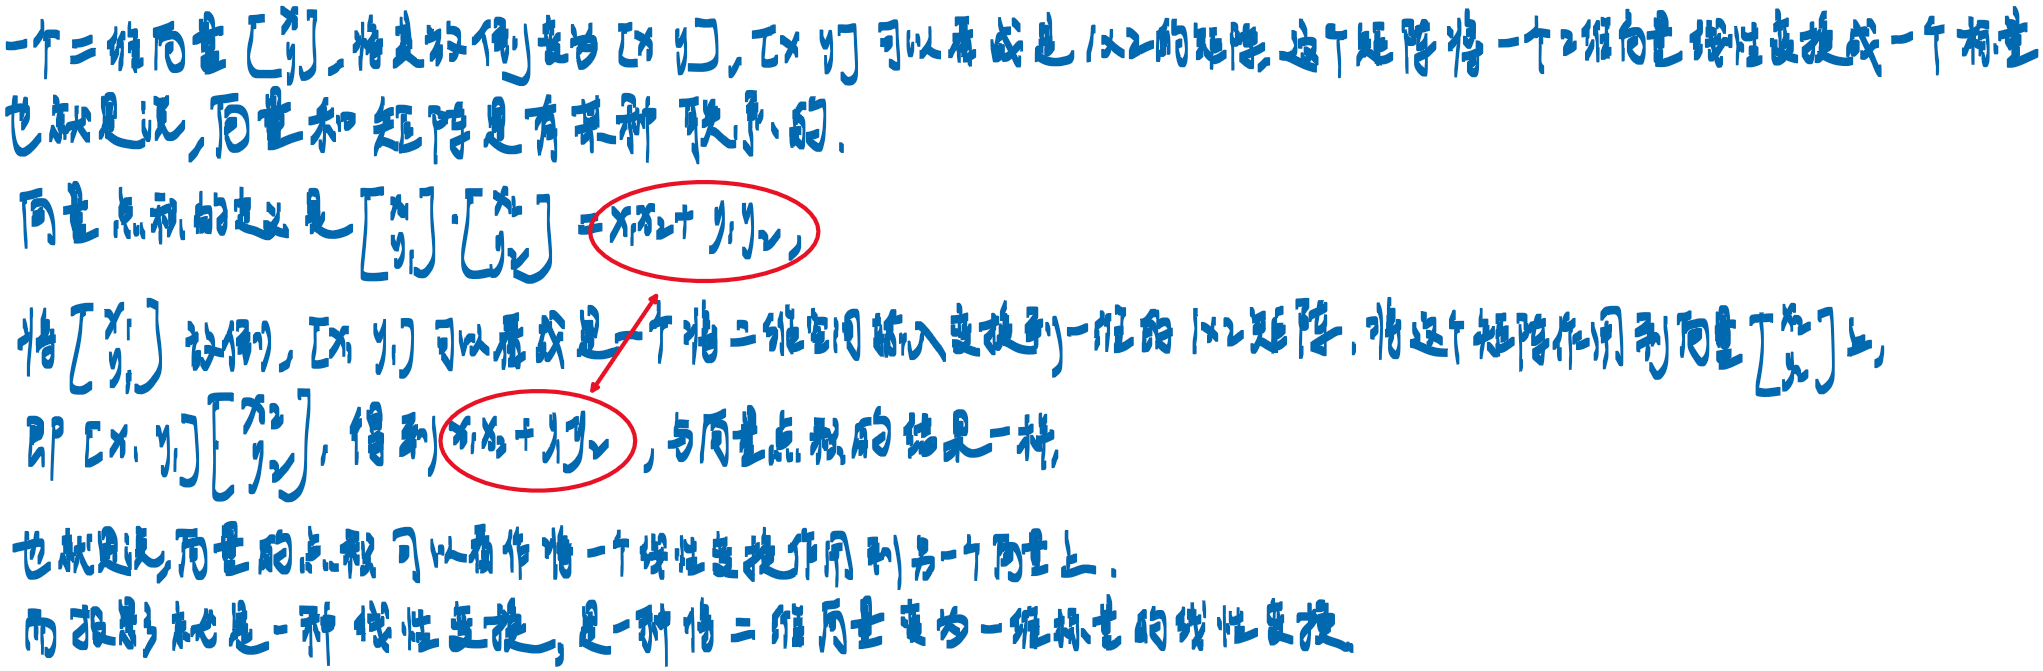 一个二维向量[x y],将其放倒变为[x y],[x y]可以看成是1×2的矩阵,这个矩阵将一个2维向量线性变换成一个标量
也就是说,向量和矩阵是有某种联系的.
向量点积的定义是[x₁ y₁]·[x₂ y₂]=x₁x₂+y₁y₂,
将[x₁ y₁]放倒,[x₁ y₁]可以看成是一个将二维空间输入变换到一维的1×2矩阵.将这个矩阵作用到向量[x₂ y₂]上,
即[x₁ y₁][x₂ y₂],得到x₁x₂+y₁y₂,与向量点积的结果一样,
也就是说,向量的点积可以看作将一个线性变换作用到另一个向量上.
而投影就是一种线性变换,是一种将二维向量变为一维标量的线性变换.